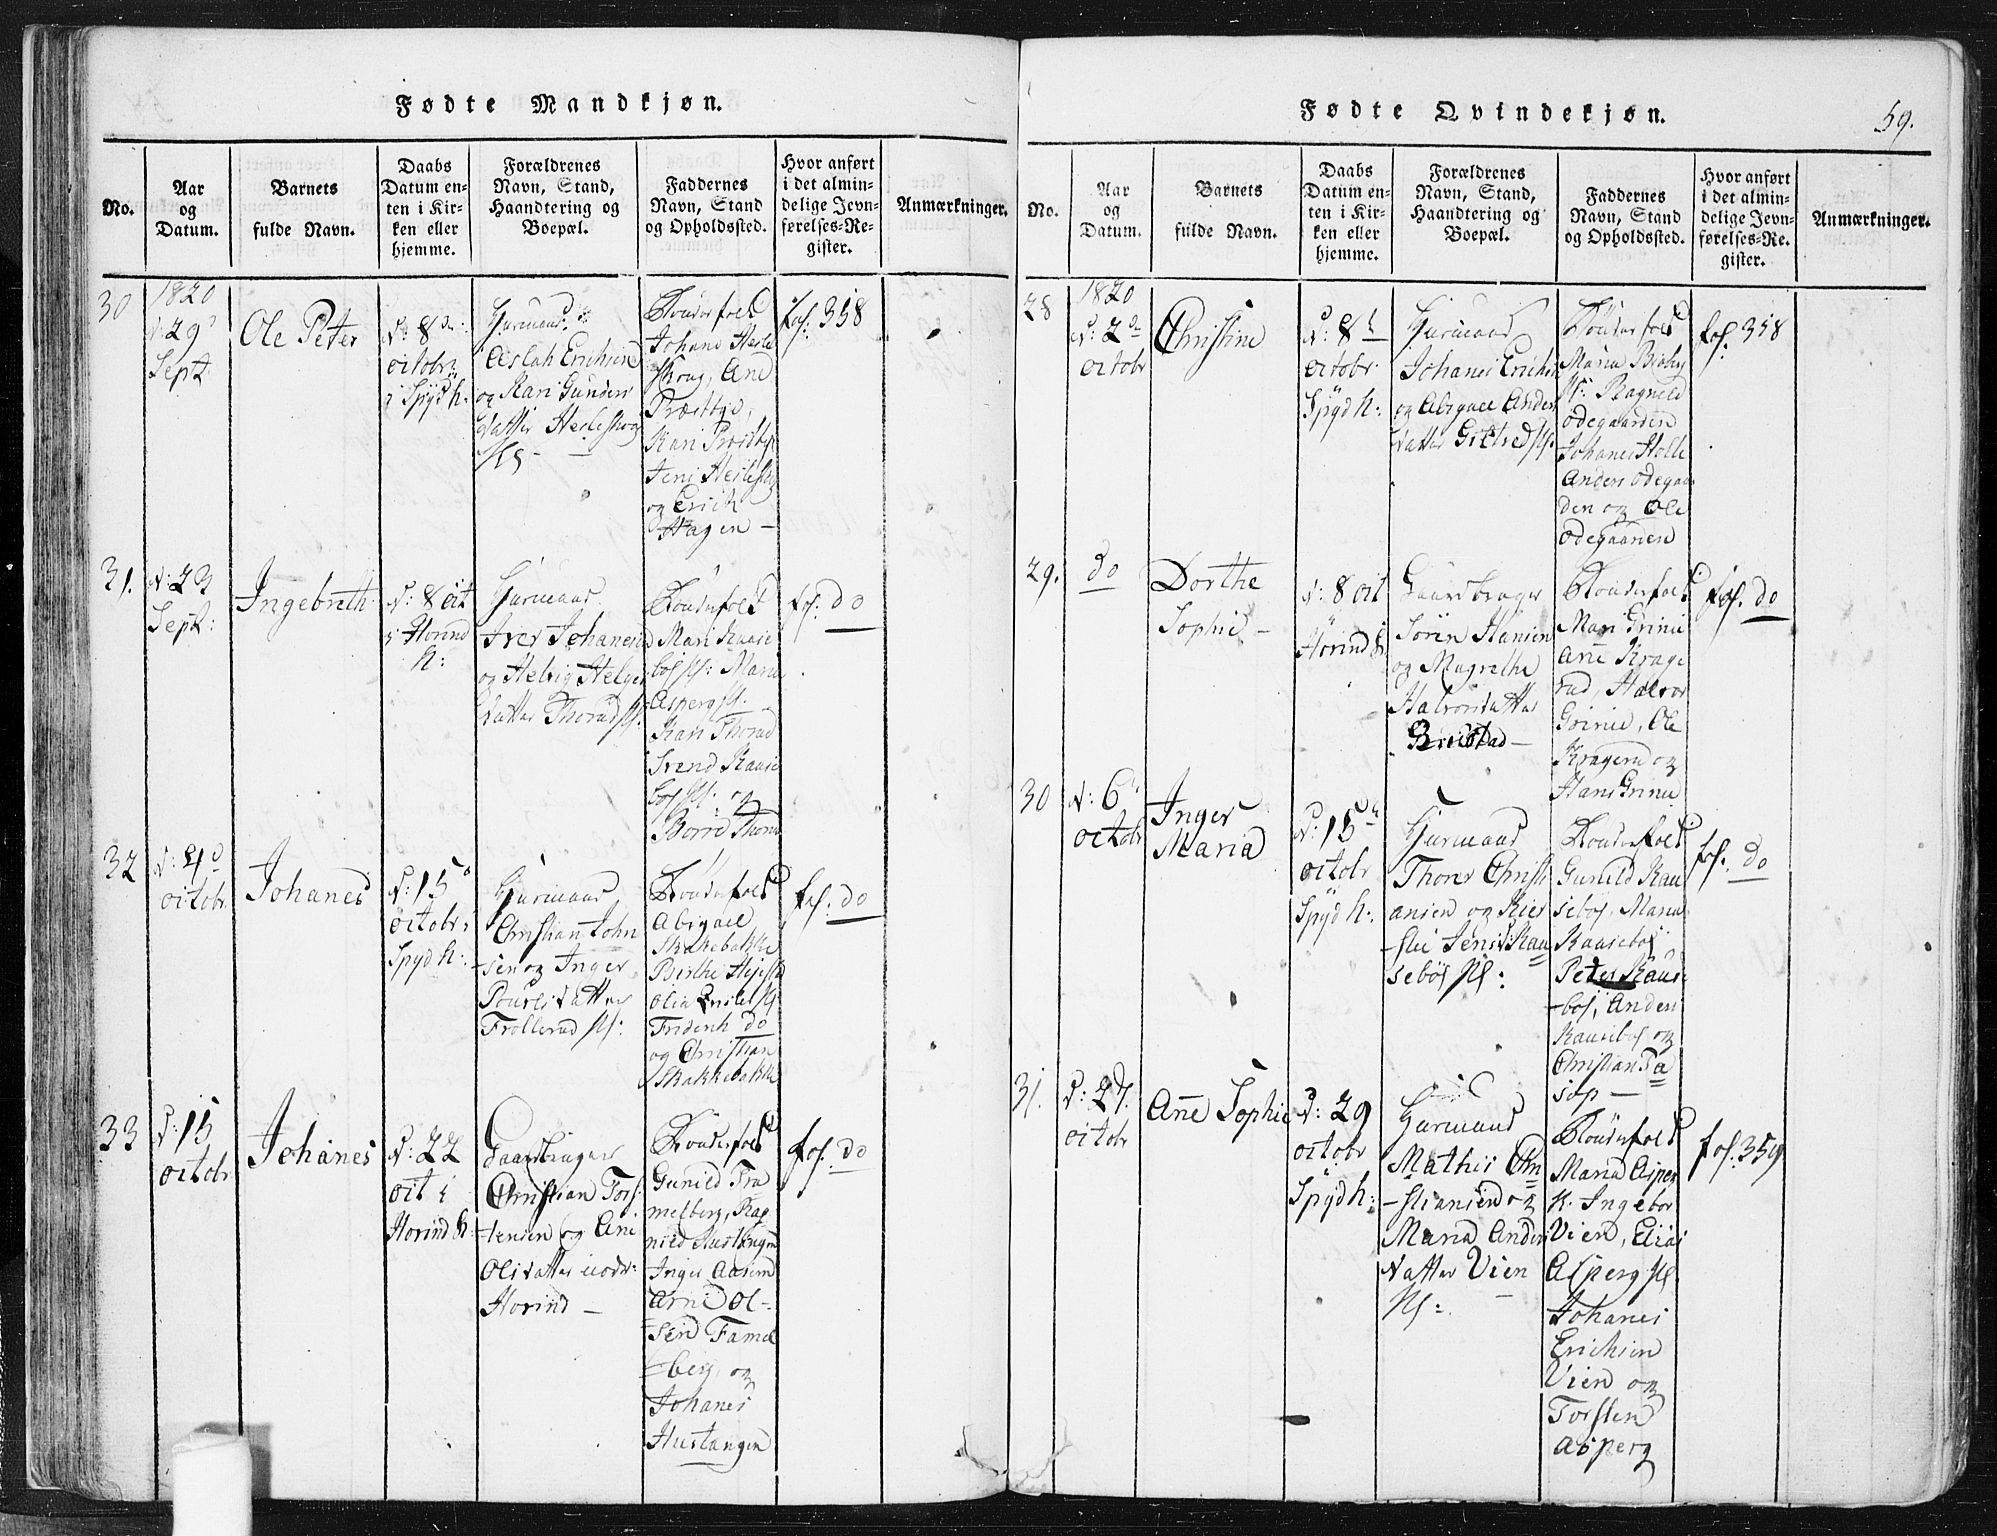 Fødte Mandkjøn.
No.
Aar
og
Datum.
Barnets
fulde Navn.
Daabs
Datum en-
ten i Kir-
ken eller
hjemme.
Forældrenes
Navn, Stand,
Haandtering og
Boepæl.
Faddernes
Navn, Stand
og Opholdssted.
Hvor anført
i det almin-
delige Jevn-
førelses-Re-
gister.
Anmærkninger.
30
1820
29
Sept
Ole Peter
8
octobr
i Spyd k:
Huusmand
Aslak Erichsen
og Kari Gunders
datter Herleskog
Bondefolk
Johane Herle
skog, Ane
Præstbye,
Kari
Jens
og Erich
Hagen –
fol: 358
31.
d: 23
Sept:
Ingebreth
d: 8 oct
i Horind
k:
Huusmand
Iver Johanesen
og Helvig Helges
datter Thorud
Bondefolk
Mari Kause
Maria
Asperg
Kari Thorud
Svend Kause
og
Thorud
fol: do
32
d: 4
octobr
Johanes
d: 15
octobr i
Spyd k:
Huusmand
Christian John
sen og Inger
Pouls datter
Trollerud
Bondefolk
Abigael
Skakebakke
Birthe
og Christian
Skakkebakke
fol: do
33
d: 15
octobr
Johanes
d: 22
oct i
Horind k
Gaardbruger
Christian Tors
tensen og Ane
Ols datter
Horind –
Bondefolk
Gunild
melberg, Rag
nild Hustangen
Inger
Arne Ol-
sen
berg, og
Johanes
Hustangen
fol: do
Fødte Qvindekjøn.
59.
No.
Aar
og
Datum.
Barnets
fulde Navn.
Daabs
Datum en-
ten i Kir-
ken eller
hjemme.
Forældrenes
Navn, Stand,
Haandtering og
Boepæl.
Faddernes
Navn, Stand
og Opholdssted.
Hvor anført
i det almin-
delige Jevn-
førelses-Re-
gister.
Anmærkninger.
28
1820
d: 2
octobr
Christine
d: 8
octobr
Spyd k:
Huusmand
Johanes Erichsen
og Abigael Anders
datter
Bondefolk
Maria
Ragnild
Odegaarden
Johanes
Anders Odegaar
den og Ole
Odegaarden
fol: 358
29.
do
Dorthe
Sophie –
d: 8 oct
Horind k
Gaardbruger
Søren Hansen
og Magrethe
Halvors datter
Bondefolk
Mari Grinie
Ane Krage
rud, Halvor
Grinie, Ole
Kragerud og
Hans Grinie
fol: do
30
d: 6
octobr
Inger
Maria
d: 15
octobr
Spyd k:
Huusmand
Thorer Christi
ansen og Kier
stie Jensd Kau
sebøl
Bondefolk
Gunild Kau
sebøl, Maria
Kausebøl
Peter Kause
bøl, Anders
Kausebøl og
Christian Ta
sop –
fol: do
31.
d: 27.
octobr
Ane Sophie
d: 29
octobr
Spyd k:
Huusmand
Mathis Chri
stiansen og
Maria Anders
datter Vien
Bondefolk
Maria Asper
Ingebor
Vien, Elias
Asperg
Johanes
Erichsen
Vien og
Torsten
Asperg
fol: 359